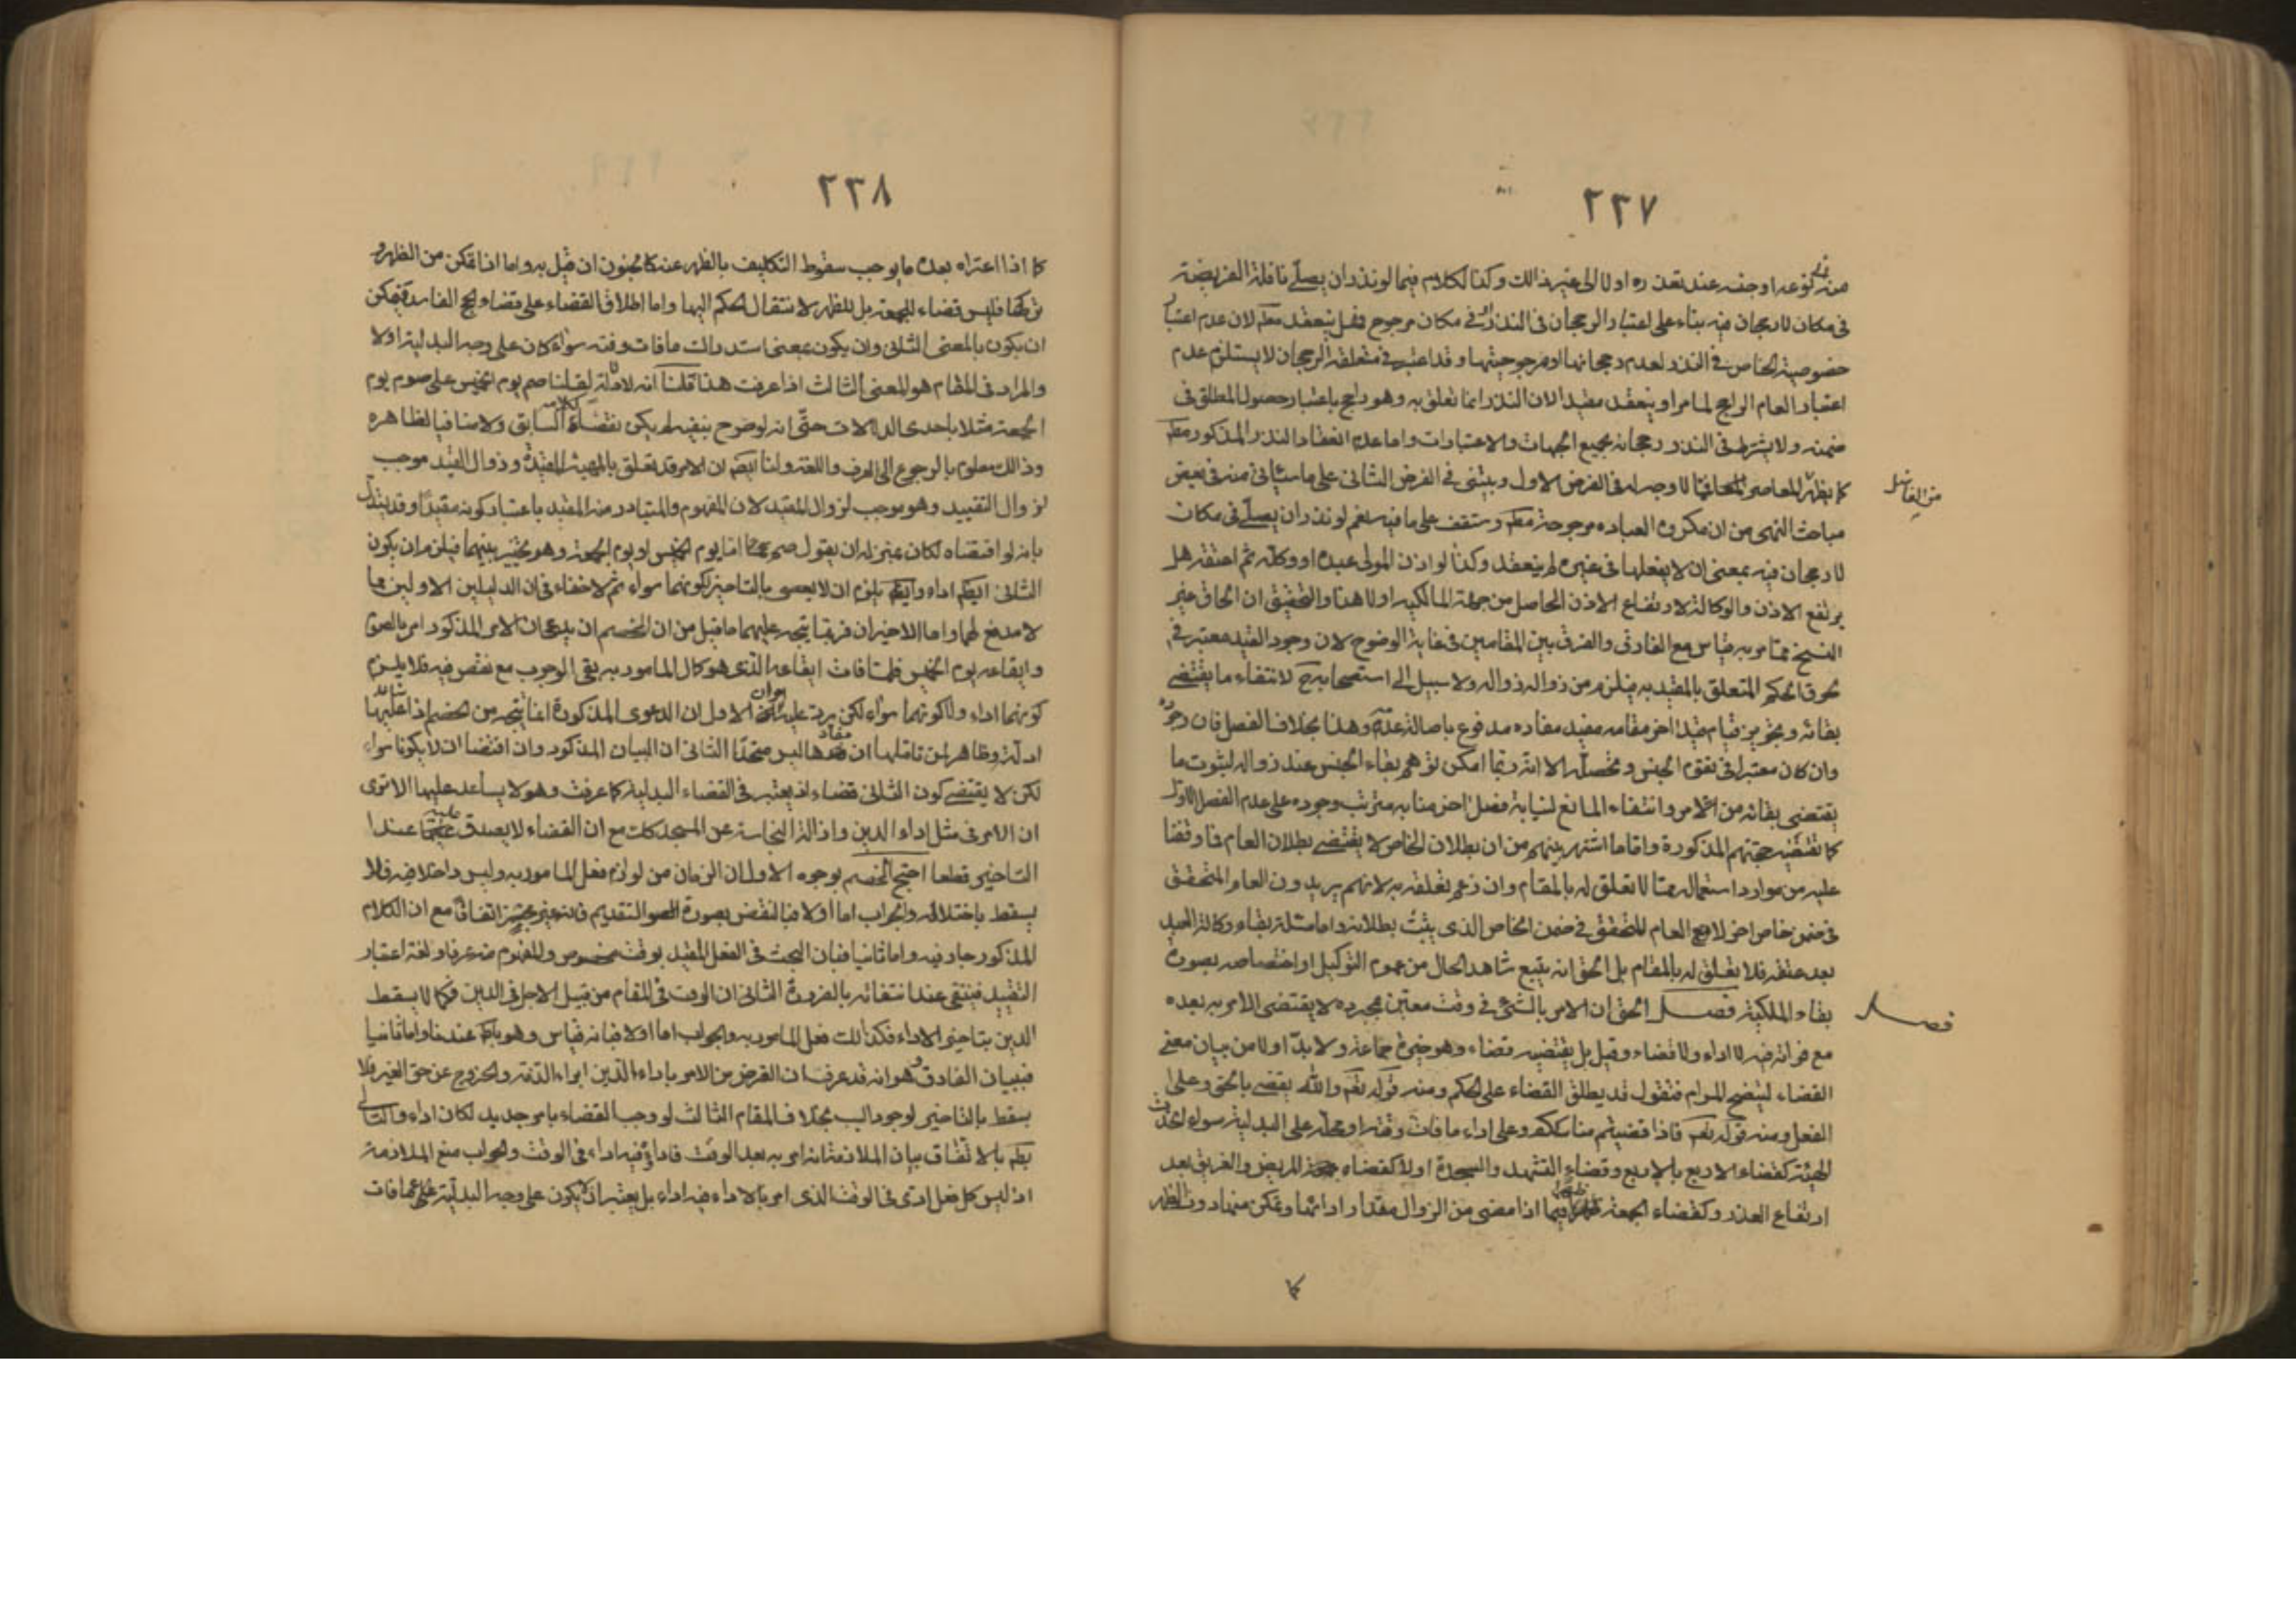 ٢٣٧
من نوعه او جنسه عند تعذره او لا الى غير ذالك وكذا الكلام فيما لو نذر ان يصلّى نافلة الفريضة
فى مكان لا رجحان فيه بناء على اعتبار الرجحان فى النذر او فى مكان مرجوح فهل ينعقد مطم لان عدم اعتبار
خصوصية الخاص فى النذر لعدم رجحانها او مرجوحيتها وقد اعتبر فى متعلقه الرجحان لا يستلزم عدم
اعتبار العام الراجح لما مر او ينعقد مقيدا لان النذر انما تعلق به وهو راجح باعتبار حصول المطلق فى
ضمنه ولا يشترط فى النذر رجحانه بجميع الجهات والاعتبارات واما عدم انعقاد النذر المذكور مطم
كما يظهر من الفاضل المعاصر لا وجه له فى الفرض الاول ويبتنى فى الفرض الثانى على ما سيأتى منه فى بعض
من الفاضل
مباحث النهى من ان مكروه العباده مرجوحة مطم وستقف على ما فيه نعم لو نذر ان يصلّى فى مكان
لا رجحان فيه بمعنى ان لا يفعلها فى غيره لم ينعقد وكذا لو اذن المولى عبده او وكله ثم اعتقه هل
يرتفع الاذن والوكالة لارتفاع الاذن الحاصل من جهة المالكيه او لا هذا والتحقيق ان الحاق غير
النسخ ممّا مر به قياس مع الفارق والفرق بين المقامين فى غاية الوضوح لان وجود القيد معتبر فى
لحوق الحكم المتعلق بالمقيد به فيلزم من زواله زواله ولا سبيل الى استصحابه ح لانتفاء ما يقتضى
بقائه وتجويز قيام قيد اخر مقامه مفيد مفاده مدفوع باصالة عدمه وهذا بخلاف الفصل فان وجوده
وان كان معتبرا فى تقوم الجنس وتحصله الا انه ربّما امكن توهم بقاء الجنس عند زواله لثبوت ما
يقتضى بقائه من الامر وانتفاء المانع لنيابة فصل اخر منابه مترتب وجوده على عدم الفصل الاول
كما تقتضيه حجتهم المذكورة وامّا ما اشتهر بينهم من ان بطلان الخاص لا يقتضى بطلان العام فما وقفنا
عليه من موارد استعماله ممّا لا تعلق له بالمقام وان زعم تعلقه به لانهم يريدون العام المتحقق
فى ضمن خاص اخر لا مع العام المتحقق فى ضمن الخاص الذى يثبت بطلانه واما مسئلة بقاء وكالة العبد
بعد عتقه فلا تعلق له بالمقام بل الحق انه يتبع شاهد الحال من عموم التوكيل او اختصاصه بصورة
بقاء الملكية فصل الحق ان الامر بالشئ فى وقت معين بمجرده لا يقتضى الامر به بعده
فصل
مع فواته فيه لا اداء ولا قضاء وقيل بل يقتضيه قضاء وهو خيرة جماعة ولا بدّ اولا من بيان معنى
القضاء ليتضح المرام فنقول قد يطلق القضاء على الحكم ومنه قوله تعم والله يقضى بالحق وعلى
الفعل ومنه قوله تعم فاذا قضيتم مناسككم وعلى اداء ما فات وقته او محله على البدلية سواء اتحدت
الهيئة كقضاء الاربع بالاربع وقضاء التشهد والسجدة اولا كقضاء المريض والغريق بعد
ارتفاع العذر وكقضاء الجمعة ظهرا فيما اذا مضى من الزوال مقدار ادائها وتمكن منها دون الظهر
كما
٢٣٨
كما اذا اعتراه بعده ما يوجب سقوط التكليف بالظهر عنه كالجنون ان قيل به واما اذا تمكن من الظهر و
تركها فليس قضاء للجمعة بل للظهر لانتقال الحكم اليها واما اطلاق القضاء على قضاء الحج الفاسد فيمكن
ان يكون بالمعنى الثانى وان يكون بمعنى استدراك ما فات وقته سواء كان على وجه البدلية اولا
والمراد فى المقام هو المعنى الثالث اذا عرفت هذا قلنا انه لا دلالة لقولنا صم يوم الخميس على صوم يوم
الجمعة مثلا باحدى الدلالات حتّى انه لو صرح بنفيه لم يكن نقضا لكلامه السابق ولا منافيا لظاهره
وذالك معلوم بالرجوع الى العرف واللغة ولنا ايضم ان الامر قد تعلق بالمهية المقيدة وزوال القيد موجب
لزوال التقييد وهو موجب لزوال المقيد لان المفهوم والمتبادر منه المقيد باعتبار كونه مقيدًا وقد يستدل
بانه لو اقتضاه لكان بمنزلة ان يقول صم اما يوم الخميس او يوم الجمعة وهو تخيير بينهما فيلزم ان يكون
الثانى ايضم اداء وايضم يلزم ان لا يعصى بالتاخير لكونهما سواء ثم لا خفاء فى ان الدليلين الاولين مما
لا مدفع لهما واما الاخيران فربّما يتجه عليهما ما قيل من ان للخصم ان يدعى ان الامر المذكور امر بالصوم
وايقاعه يوم الخميس فلمّا فات ايقاعه الذى هو كمال المامور به بقى الوجوب مع نقص فيه فلا يلزم
كونهما اداء ولا كونهما سواء لكن يرد عليه امران الاول ان الدعوى المذكورة انما يتجه من الخصم اذا ساعد عليها
ادلته وظاهر لمن تاملها ان مفادها ليس متحدًا الثانى ان البيان المذكور وان اقتضا ان لا يكونا سواء
لكن لا يقتضى كون الثانى قضاء اذ يعتبر فى القضاء البدلية كما عرفت وهو لا يساعد عليها الا ترى
ان الامر فى مثل اداء الدين وازالة النجاسة عن المسجد كك مع ان القضاء لا يصدق عليه عند
التاخير قطعا احتج الخصم بوجوه الاول ان الزمان من لوازم فعل المامور به وليس داخلا فيه فلا
يسقط باختلاله والجواب اما اولا فبالنقض بصورة التقديم فانه غير مجز اتفاقًا مع ان الكلام
المذكور جار فيه واما ثانيا فبان البحث فى الفعل المقيد بوقت مخصوص والمفهوم منه عرفا ولغة اعتبار
التقييد فينتفى عند انتفائه بالضرورة الثانى ان الوقت فى المقام من قبيل الاجل فى الدين فكما لا يسقط
الدين بتاخير الاداء فكذالك فعل المامور به والجواب اما اولا فبانه قياس وهو باطم عندنا واما ثانيا
فببيان الفارق وهو انه قد عرف ان الغرض من الامر باداء الدين ابراء الذمة والخروج عن حق الغير فلا
يسقط بالتاخير لوجود السبب بخلاف المقام الثالث لو وجب القضاء بامر جديد لكان اداء والتالى
بطم بالاتفاق بيان الملازمة انه امر به بعد الوقت فاداؤه فيه اداء فى الوقت والجواب منع الملازمة
اذ ليس كل فعل ادى فى الوقت الذى امر بالاداء فيه اداء بل يعتبر ان لا يكون على وجه البدلية عما فات